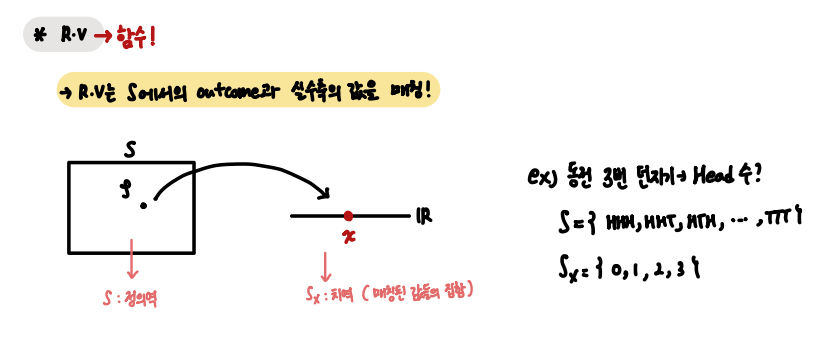 * R.V → 함수!
→ R.V는 S에서의 outcome과 실수축의 값을 매칭!
S
ξ
IR
x
S : 정의역
Sx : 치역 ( 매칭된 값들의 집합 )
ex) 동전 3번 던지기 → Head 수?
S = { HHH, HHT, HTH, ... , TTT }
Sx = { 0, 1, 2, 3 }